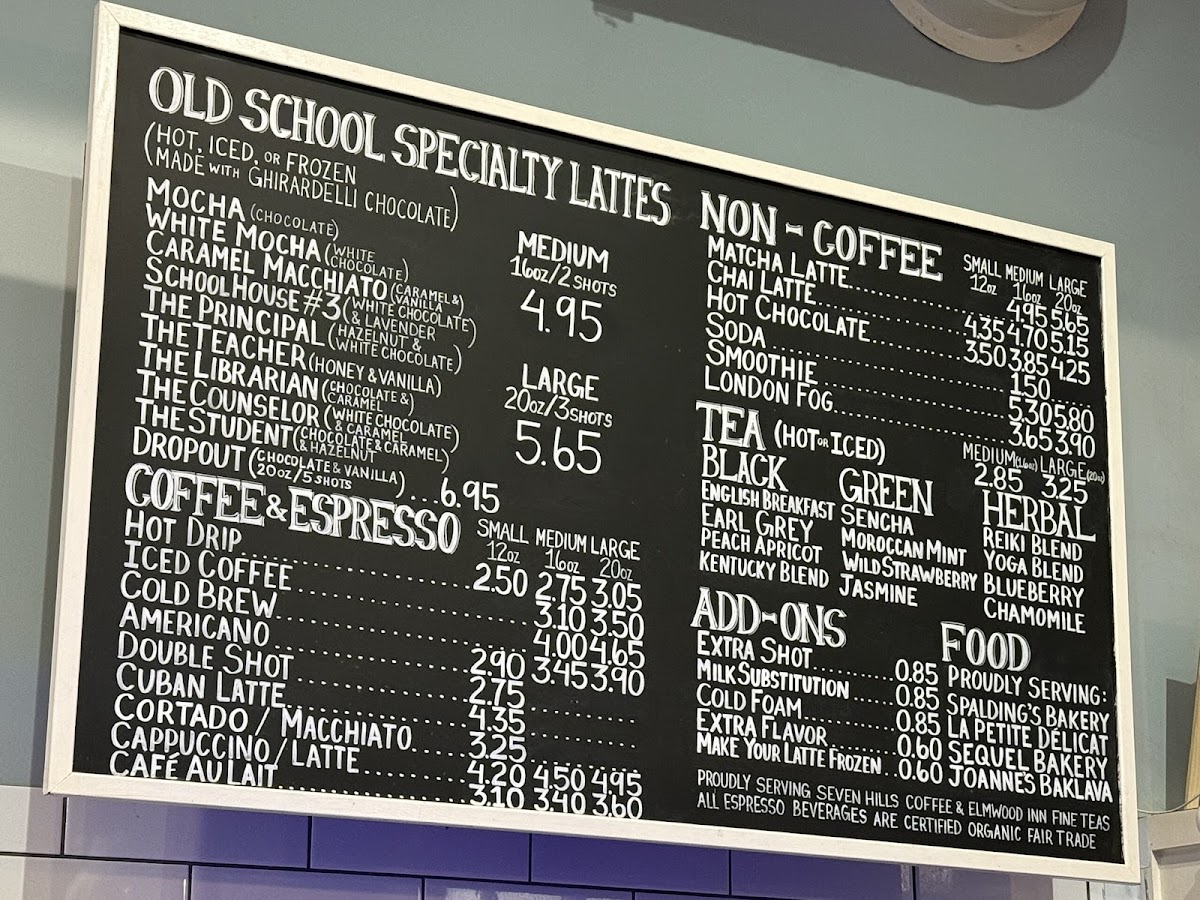 OLD SCHOOL SPECIALTY LATTES
(HOT, ICED, OR FROZEN
(MADE WITH GHIRARDELLI CHOCOLATE)
MOCHA (CHOCOLATE)
WHITE MOCHA (WHITE CHOCOLATE)
CARAMEL MACCHIATO (CARAMEL & VANILLA)
SCHOOL HOUSE #3 (WHITE CHOCOLATE & LAVENDER)
THE PRINCIPAL (HAZELNUT & WHITE CHOCOLATE)
THE TEACHER (HONEY & VANILLA)
THE LIBRARIAN (CHOCOLATE & CARAMEL)
THE COUNSELOR (WHITE CHOCOLATE & CARAMEL)
THE STUDENT (CHOCOLATE & CARAMEL & HAZELNUT)
DROPOUT (CHOCOLATE & VANILLA 20oz/5 SHOTS)...6.95
MEDIUM
16oz/2 SHOTS
4.95
LARGE
20oz/3 SHOTS
5.65
COFFEE & ESPRESSO
SMALL MEDIUM LARGE
12oz 16oz 20oz
HOT DRIP 2.50 2.75 3.05
ICED COFFEE 3.10 3.50
COLD BREW 4.00 4.65
AMERICANO 2.90 3.45 3.90
DOUBLE SHOT 2.75
CUBAN LATTE 4.35
CORTADO / MACCHIATO 3.25
CAPPUCCINO / LATTE 4.20 4.50 4.95
CAFÉ AU LAIT 3.10 3.40 3.60
NON-COFFEE
SMALL MEDIUM LARGE
12oz 16oz 20oz
MATCHA LATTE 4.95 5.65
CHAI LATTE 4.35 4.70 5.15
HOT CHOCOLATE 3.50 3.85 4.25
SODA 1.50
SMOOTHIE 5.30 5.80
LONDON FOG 3.65 3.90
TEA (HOT OR ICED)
MEDIUM (16oz) LARGE (20oz)
2.85 3.25
BLACK
ENGLISH BREAKFAST
EARL GREY
PEACH APRICOT
KENTUCKY BLEND
GREEN
SENCHA
MOROCCAN MINT
WILD STRAWBERRY
JASMINE
HERBAL
REIKI BLEND
YOGA BLEND
BLUEBERRY
CHAMOMILE
ADD-ONS
EXTRA SHOT 0.85
MILK SUBSTITUTION 0.85
COLD FOAM 0.85
EXTRA FLAVOR 0.60
MAKE YOUR LATTE FROZEN..0.60
FOOD
PROUDLY SERVING:
SPALDING'S BAKERY
LA PETITE DÉLICAT
SEQUEL BAKERY
JOANNE'S BAKLAVA
PROUDLY SERVING SEVEN HILLS COFFEE & ELMWOOD INN FINE TEAS
ALL ESPRESSO BEVERAGES ARE CERTIFIED ORGANIC FAIR TRADE